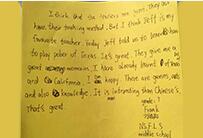 I think that the teachers are great. They all
have their teaching method. But I think Jeff is my
favourite teacher. Today Jeff told us to learn how
to play poker of Texas. It's great. They give me a
great memory. I have already learned of Texas
and California. I am happy. There are games, cards
and also knowledge. It is interesting than Chinese's.
That's great.
grade: 7
Frank
NSFLS
middle school